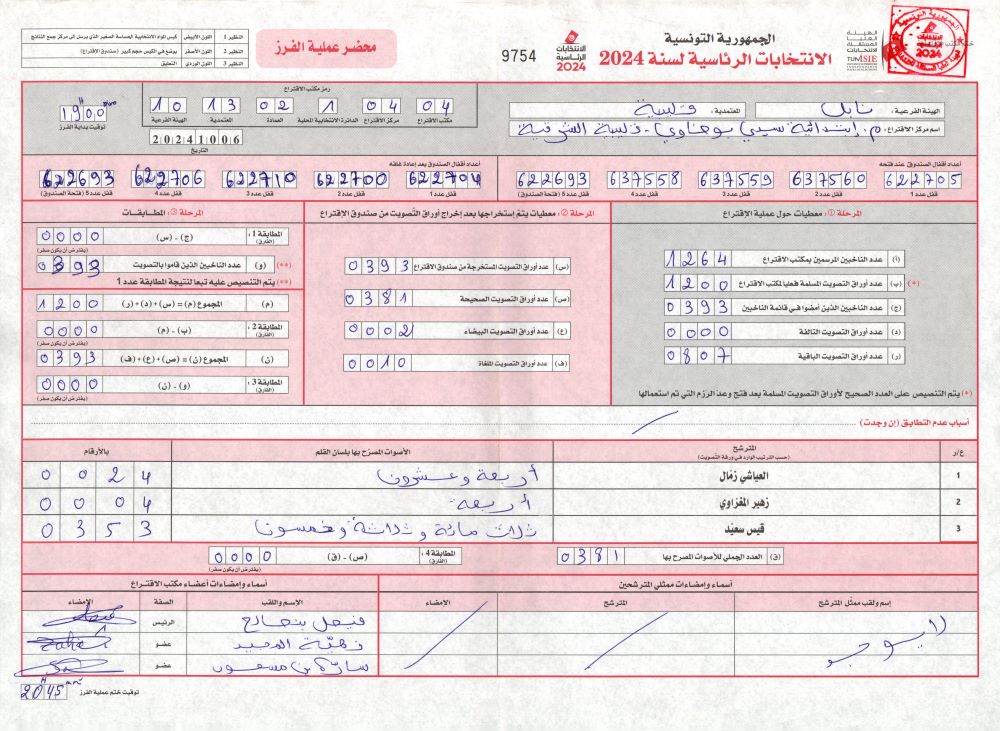 الجمهورية التونسية
الانتخابات الرئاسية لسنة 2024
الانتخابات الرئاسية 2024
9754
محضر عملية الفرز
النظير 1 اللون الأبيض كيس المواد الانتخابية الحساسة الصغير الذي يرسل إلى مركز جمع النتائج
النظير 2 اللون الأصفر يوضع في الكيس حجم كبير (صندوق الاقتراع)
النظير 3 اللون الوردي التعليق
الهيئة الفرعية: نابل المعتمدية: قليبية
اسم مركز الاقتراع: م. إبتدائية سيدي بوخاوي - قليبية الشرقية
رمز مكتب الاقتراع
04 04 1 02 13 10
مكتب الاقتراع مركز الاقتراع الدائرة الانتخابية المحلية العمادة المعتمدية الهيئة الفرعية
20241006
التاريخ
19H00
توقيت بداية الفرز
أعداد أقفال الصندوق عند فتحه
622705 637560 637559 637558 622693
قفل عدد 1 قفل عدد 2 قفل عدد 3 قفل عدد 4 قفل عدد 5 (فتحة الصندوق)
أعداد أقفال الصندوق بعد إعادة غلقه
622704 622700 622710 622706 622693
قفل عدد 1 قفل عدد 2 قفل عدد 3 قفل عدد 4 قفل عدد 5 (فتحة الصندوق)
المرحلة ①: معطيات حول عملية الاقتراع
(أ) عدد الناخبين المرسمين بمكتب الاقتراع 1264
(*) (ب) عدد أوراق التصويت المسلمة فعليا لمكتب الاقتراع 1200
(ج) عدد الناخبين الذين أمضوا في قائمة الناخبين 0393
(د) عدد أوراق التصويت التالفة 0000
(ر) عدد أوراق التصويت الباقية 0807
(*) يتم التنصيص على العدد الصحيح لأوراق التصويت المسلمة بعد فتح وعد الرزم التي تم استعمالها
المرحلة ②: معطيات يتم إستخراجها بعد إخراج أوراق التصويت من صندوق الاقتراع
(س) عدد أوراق التصويت المستخرجة من صندوق الاقتراع 0393
(ص) عدد أوراق التصويت الصحيحة 0381
(ع) عدد أوراق التصويت البيضاء 0002
(ف) عدد أوراق التصويت الملغاة 0010
المرحلة ③: المطابقات
المطابقة 1: (الفارق) (ج) - (س) 0000
(يفترض أن يكون صفر)
(**) (و) عدد الناخبين الذين قاموا بالتصويت 0393
(**) يتم التنصيص عليه تبعا لنتيجة المطابقة عدد 1
(م) المجموع (م) = (س) + (د) + (ر) 1200
المطابقة 2: (الفارق) (ب) - (م) 0000
(يفترض أن يكون صفر)
(ن) المجموع (ن) = (ص) + (ع) + (ف) 0393
المطابقة 3: (الفارق) (و) - (ن) 0000
(يفترض أن يكون صفر)
أسباب عدم التطابق (إن وجدت)
ع/ر المترشح الأصوات المصرح بها بلسان القلم بالأرقام
(حسب الترتيب الوارد في ورقة التصويت)
1 العياشي زمّال أربعة وعشرون 0024
2 زهير المغزاوي أربعة 0004
3 قيس سعيّد ثلاث مائة وثلاثة وخمسون 0353
(ق) العدد الجملي للأصوات المصرح بها 0381
المطابقة 4: (الفارق) (ص) - (ق) 0000
(يفترض أن يكون صفر)
أسماء وإمضاءات ممثلي المترشحين
إسم ولقب ممثل المترشح المترشح الإمضاء
لا يوجد
أسماء وإمضاءات أعضاء مكتب الاقتراع
الإسم واللقب الصفة الإمضاء
فيصل بنصالح الرئيس
عضو
سارة بن مسعود عضو
توقيت ختم عملية الفرز 20H45